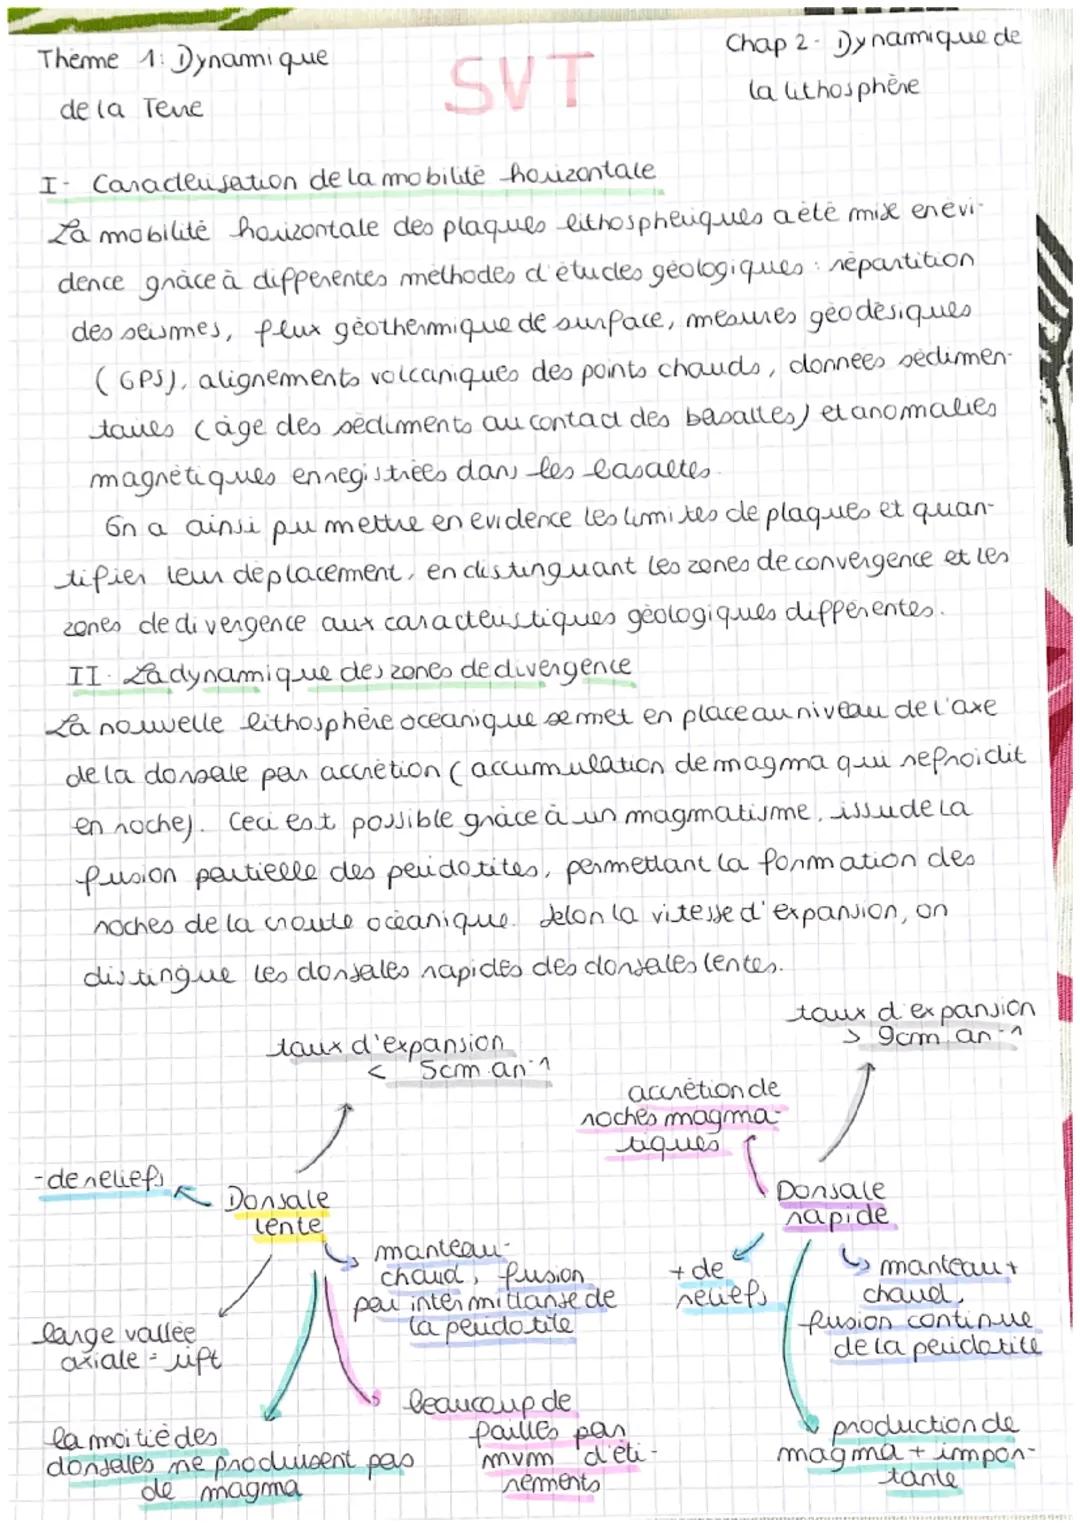 Thème 1: Dynamique
de la Terre
SVT
Chap 2 - Dynamique de
la lithosphère
I - Caractérisation de la mobilité horizontale
La mobilité horizontale des plaques lithosphériques a été mise en évi-
dence grâce à différentes méthodes d'études géologiques : répartition
des séismes, flux géothermique de surface, mesures géodésiques
(GPS), alignements volcaniques des points chauds, données sédimen-
taires (âge des sédiments au contact des basaltes) et anomalies
magnétiques enregistrées dans les basaltes.
On a ainsi pu mettre en évidence les limites de plaques et quan-
tifier leur déplacement, en distinguant les zones de convergence et les
zones de divergence aux caractéristiques géologiques différentes.
II - La dynamique des zones de divergence
La nouvelle lithosphère océanique se met en place au niveau de l'axe
de la dorsale par accrétion (accumulation de magma qui refroidit
en roche). Ceci est possible grâce à un magmatisme, issu de la
fusion partielle des péridotites, permettant la formation des
roches de la croute océanique. Selon la vitesse d'expansion, on
distingue les dorsales rapides des dorsales lentes.
taux d'expansion
< 5cm.an-1
- de reliefs
Dorsale
lente
manteau -
chaud, fusion
par intermittanse de
la péridotite
large vallée
axiale = rift
la moitié des
dorsales ne produisent pas
de magma
beaucoup de
failles par
mvm d'éti-
rements
taux d'expansion
> 9cm.an-1
accrétion de
roches magma-
tiques
Dorsale
rapide
+ de
reliefs
manteau +
chaud,
fusion continue
de la péridotite
production de
magma + impor-
tante